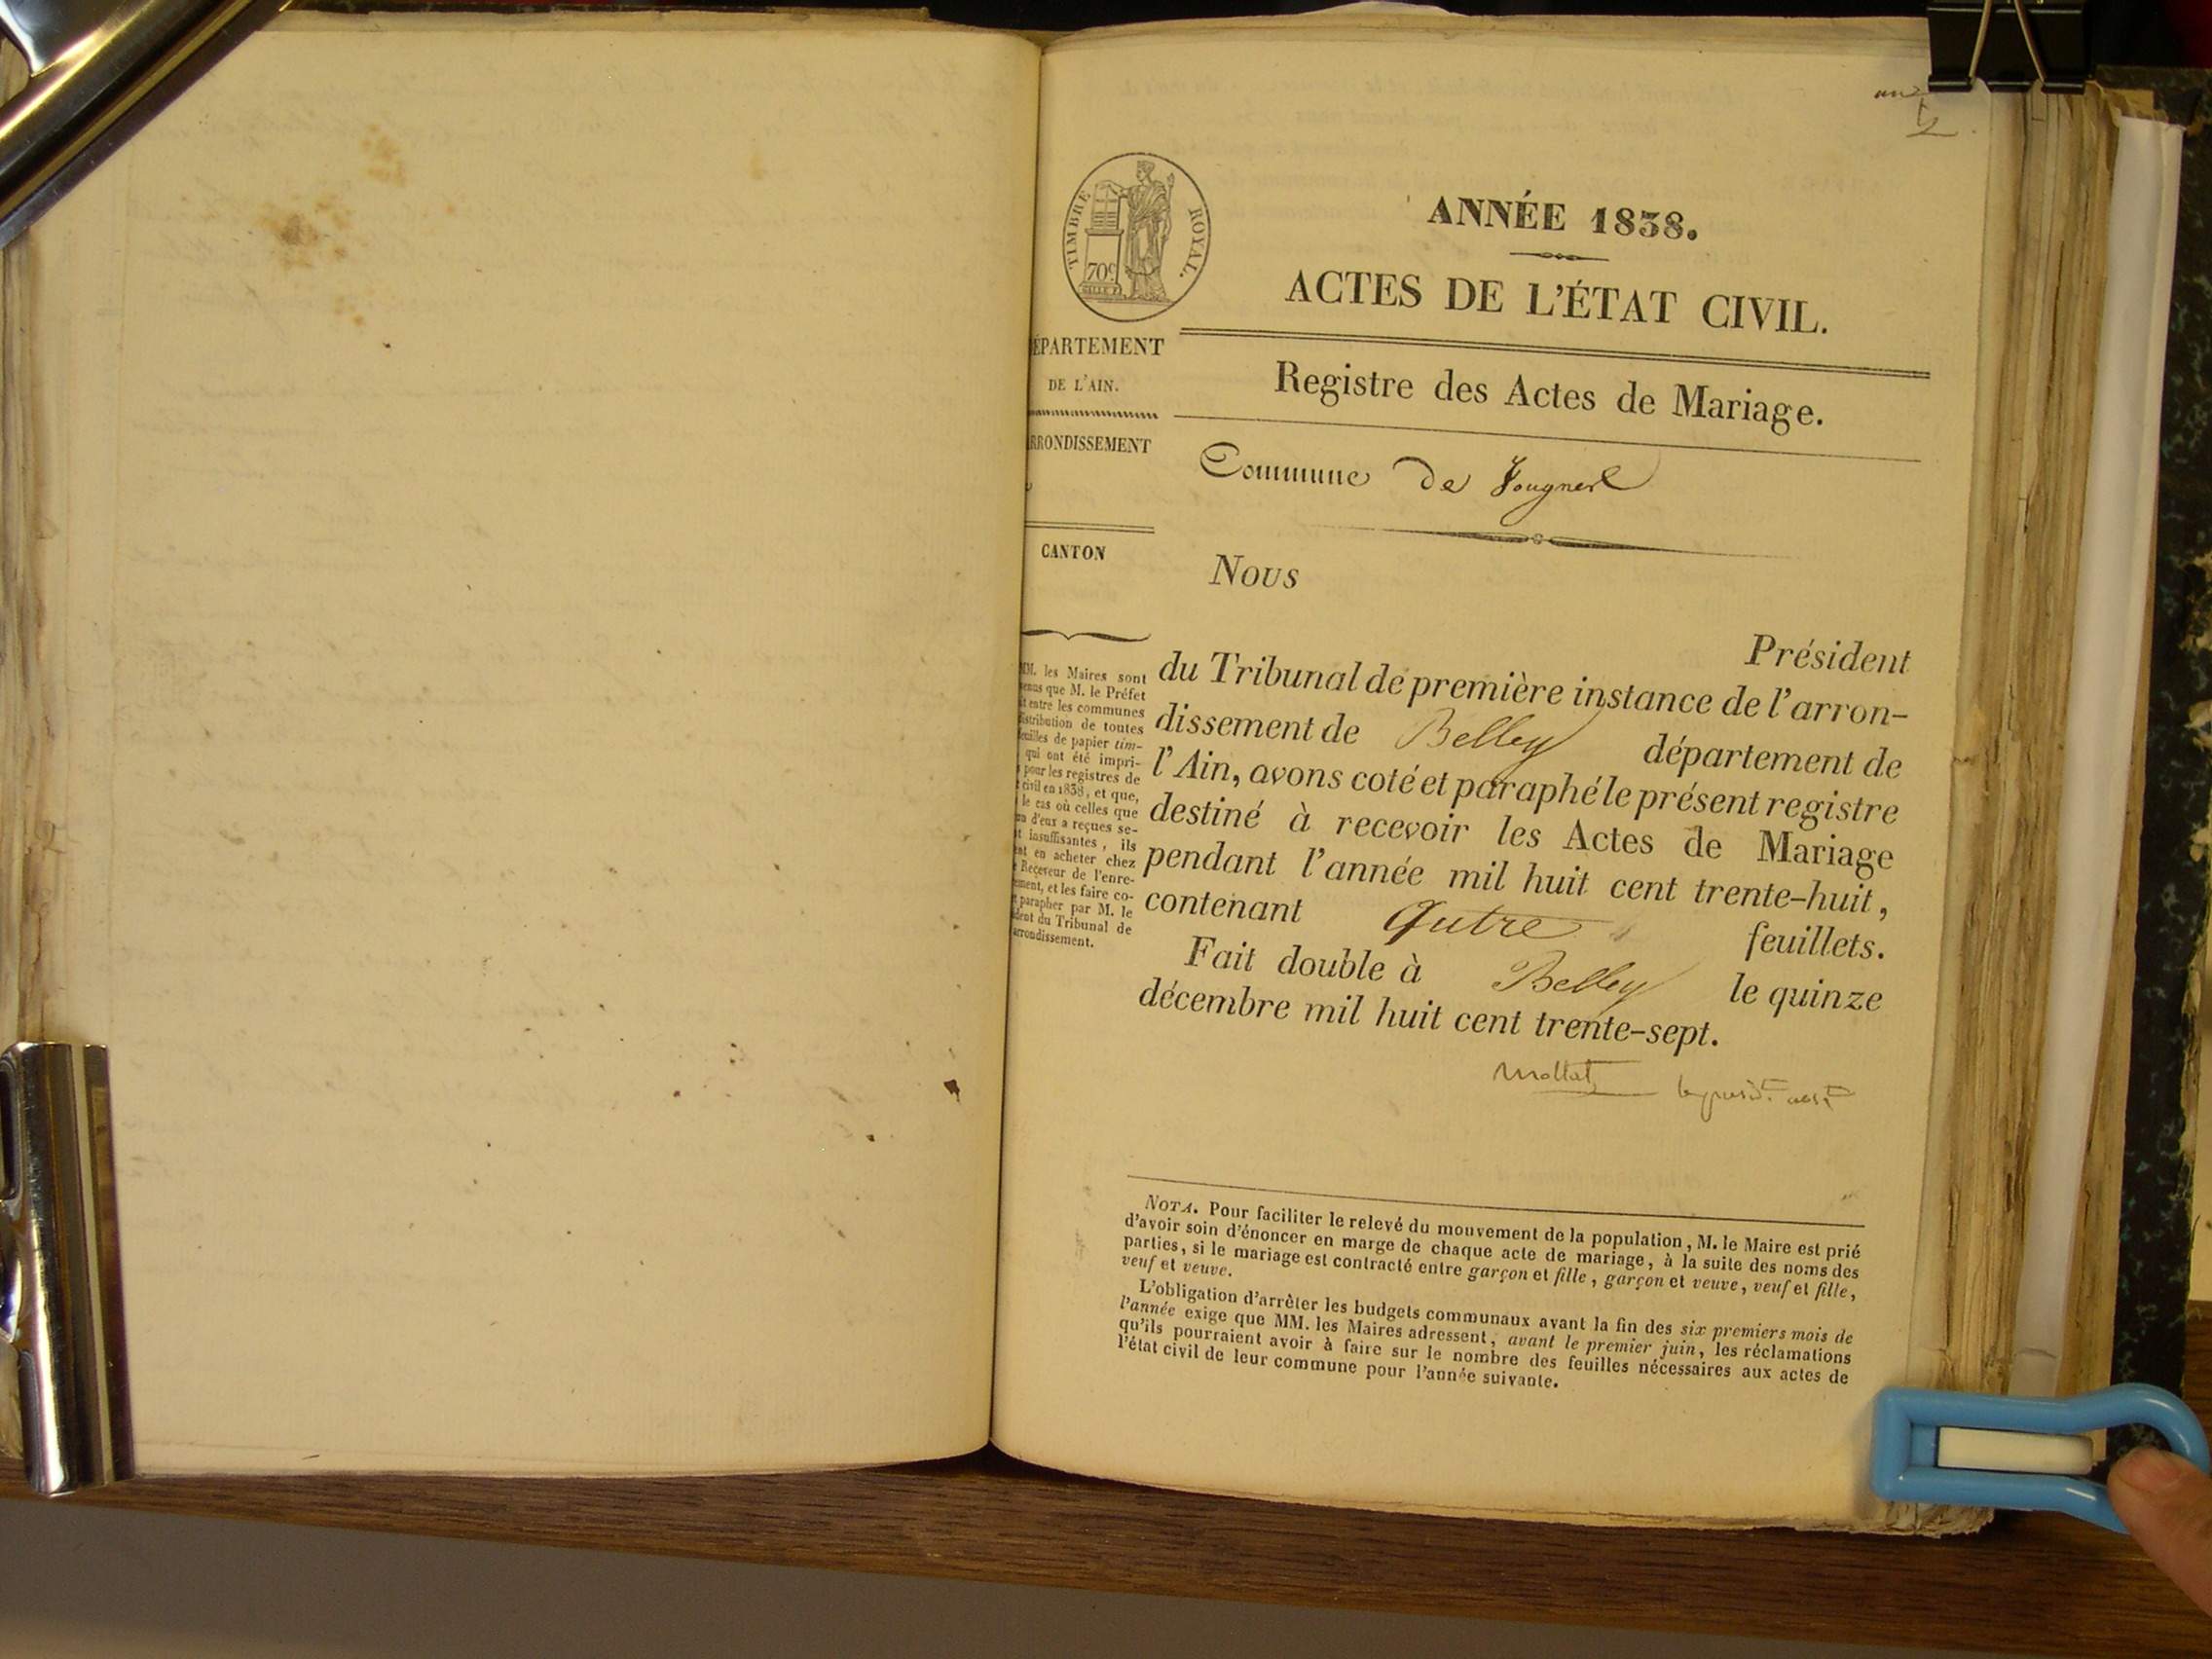 TIMBRE ROYAL.
70c
ANNÉE 1838.
ACTES DE L'ÉTAT CIVIL.
ÉPARTEMENT
DE L'AIN.
Registre des Actes de Mariage.
RRONDISSEMENT
Commune de
CANTON
Nous
Président
du Tribunal de première instance de l'arron-
dissement de Belley département de
l'Ain, avons coté et paraphé le présent registre
destiné à recevoir les Actes de Mariage
pendant l'année mil huit cent trente-huit,
contenant feuillets.
Fait double à Belley le quinze
décembre mil huit cent trente-sept.
MM. les Maires sont
enus que M. le Préfet
t entre les communes
istribution de toutes
euilles de papier tim-
qui ont été impri-
pour les registres de
civil en 1838, et que,
le cas où celles que
un d'eux a reçues se-
t insuffisantes, ils
ent en acheter chez
Receveur de l'enre-
ement, et les faire co-
parapher par M. le
ident du Tribunal de
arrondissement.
Mollat
NOTA. Pour faciliter le relevé du mouvement de la population, M. le Maire est prié
d'avoir soin d'énoncer en marge de chaque acte de mariage, à la suite des noms des
parties, si le mariage est contracté entre garçon et fille, garçon et veuve, veuf et fille,
veuf et veuve.
L'obligation d'arrêter les budgets communaux avant la fin des six premiers mois de
l'année exige que MM. les Maires adressent, avant le premier juin, les réclamations
qu'ils pourraient avoir à faire sur le nombre des feuilles nécessaires aux actes de
l'état civil de leur commune pour l'année suivante.